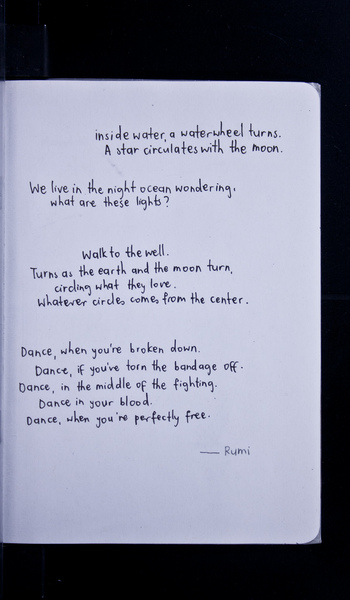 inside water, a waterwheel turns.
A star circulates with the moon.
We live in the night ocean wondering,
what are these lights?
Walk to the well.
Turns as the earth and the moon turn,
circling what they love.
Whatever circles comes from the center.
Dance, when you're broken down.
Dance, if you've torn the bandage off.
Dance, in the middle of the fighting.
Dance in your blood.
Dance, when you're perfectly free.
— Rumi